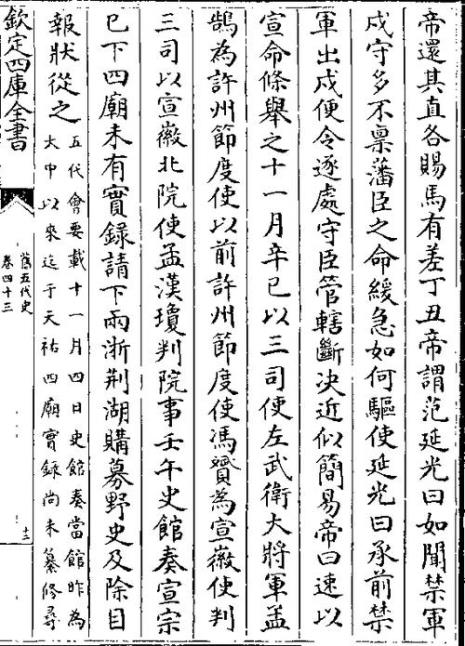 帝還其直各賜馬有差丁丑帝謂范延光曰如聞禁軍
戍守多不禀藩臣之命緩急如何驅使延光曰承前禁
軍出戍便令逐處守臣管轄斷决近似簡易帝曰速以
宣命條舉之十一月辛巳以三司使左武衛大將軍孟
鵠為許州節度使以前許州節度使馮贇為宣徽使判
三司以宣徽北院使孟漢瓊判院事壬午史館奏宣宗
已下四廟未有實録請下兩浙荆湖購募野史及除目
報狀從之
五代會要載十一月四日史館奏當館昨為
大中以來迄于天祐四廟實録尚未纂修尋
欽定四庫全書
舊五代史
卷四十三
十三